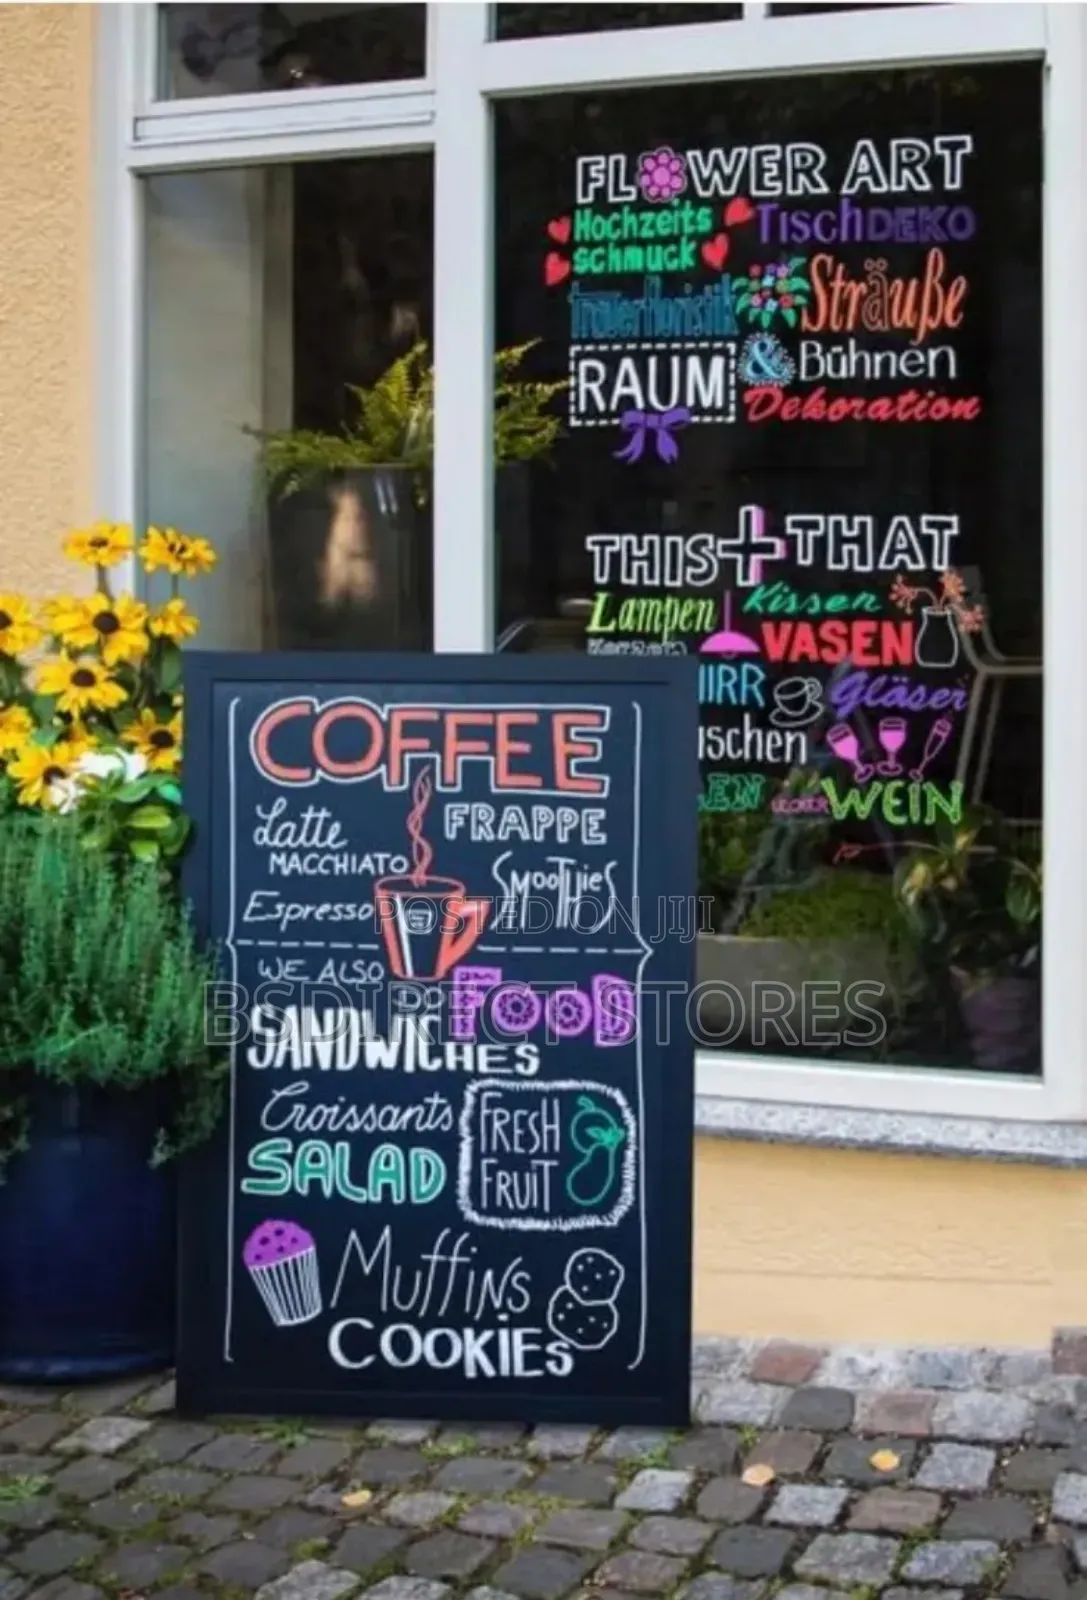 FLOWER ART
Hochzeits
schmuck
TischDEKO
Trauerfloristik
Sträuße
RAUM
& Bühnen
Dekoration
THIS + THAT
Lampen
Kissen
VASEN
Gläser
WEIN
COFFEE
Latte
MACCHIATO
Espresso
FRAPPE
SMOOTHiES
WE ALSO
DO FOOD
SANDWICHES
Croissants
SALAD
FRESH
FRUiT
MuffiNs
COOKiEs
POSTED ON JIJI
BSDIRECT STORES